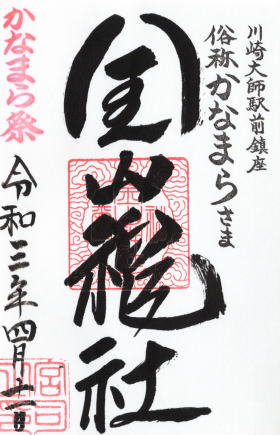 川崎大師駅前鎮座
俗称かなまらさま
金山神社
かなまら祭
令和三年四月十一日
宮司